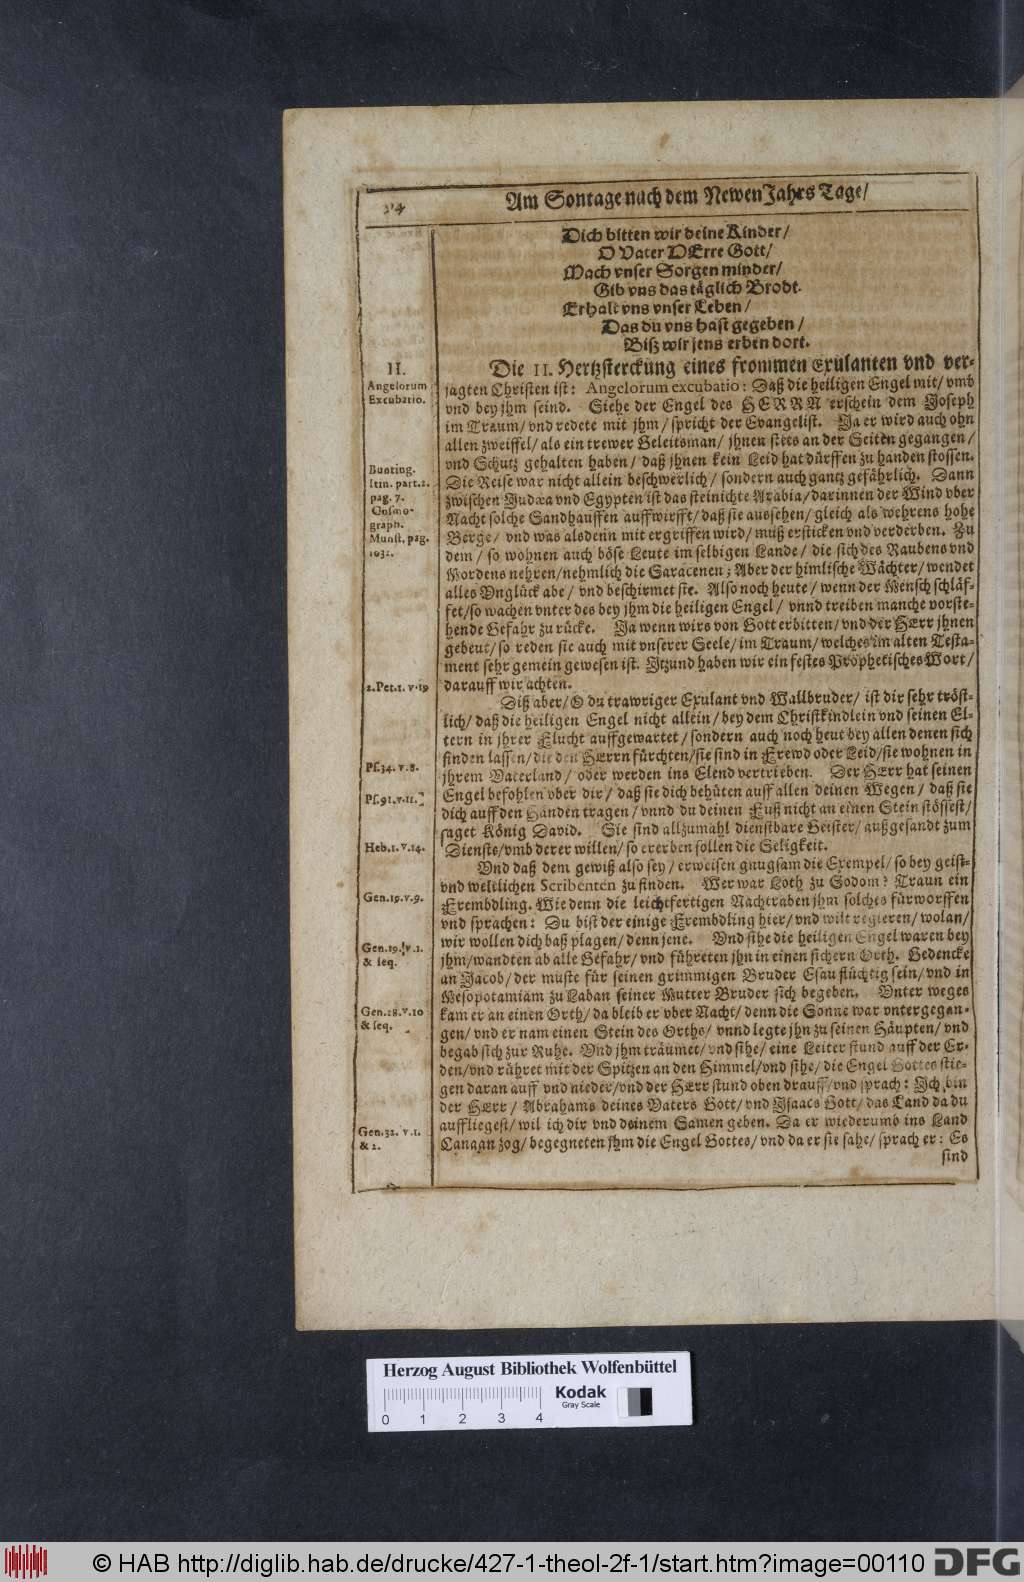 24
Am Sontage nach dem Newen Jahrs Tage/
Dich bitten wir deine Kinder/
O Vater HErre Gott/
Mach vnser Sorgen minder/
Gib vns das täglich Brodt.
Erhalt vns vnser Leben/
Das du vns hast gegeben/
Biß wir jens erben dort.
II.
Angelorum
Excubatio.
Die II. Hertzsterckung eines frommen Exulanten vnd ver-
jagten Christen ist: Angelorum excubatio: Daß die heiligen Engel mit/ vmb
vnd bey jhm seind. Siehe der Engel des HERRN erschein dem Joseph
im Traum/ vnd redete mit jhm/ spricht der Evangelist. Ja er wird auch ohn
allen zweiffel/ als ein trewer Geleitsman/ jhnen stets an der Seiten gegangen/
vnd Schutz gehalten haben/ daß jhnen kein Leid hat dürffen zu handen stossen.
Bunting.
Itin. part.2.
pag. 7.
Cosmo-
graph.
Munst. pag.
1032.
Die Reise war nicht allein beschwerlich/ sondern auch gantz gefährlich. Dann
zwischen Judæa vnd Egypten ist das steinichte Arabia/ darinnen der Wind vber
Nacht solche Sandhauffen auffwirfft/ daß sie aussehen/ gleich als wehrens hohe
Berge/ vnd was alsdenn mit ergriffen wird/ muß ersticken vnd verderben. Zu
dem/ so wohnen auch böse Leute im selbigen Lande/ die sich des Raubens vnd
Mordens nehren/ nehmlich die Saracenen; Aber der himlische Wächter/ wendet
alles Vnglück abe/ vnd beschirmet sie. Also noch heute/ wenn der Mensch schläf-
fet/ so wachen vnter des bey jhm die heiligen Engel/ vnnd treiben manche vorste-
hende Gefahr zu rücke. Ja wenn wirs von Gott erbitten/ vnd der HErr jhnen
gebeut/ so reden sie auch mit vnserer Seele/ im Traum/ welches im alten Testa-
ment sehr gemein gewesen ist. Jtzund haben wir ein festes Prophetisches Wort/
2.Pet.1. v.19
darauff wir achten.
Diß aber/ O du trawriger Exulant vnd Wallbruder/ ist dir sehr tröst-
lich/ daß die heiligen Engel nicht allein/ bey dem Christkindlein vnd seinen El-
tern in jhrer Flucht auffgewartet/ sondern auch noch heut bey allen denen sich
finden lassen/ die den HErrn fürchten/ sie sind in Frewd oder Leid/ sie wohnen in
Ps.34. v.8.
jhrem Vaterland/ oder werden ins Elend vertrieben. Der HErr hat seinen
Ps.91.v.11.
Engel befohlen vber dir/ daß sie dich behüten auff allen deinen Wegen/ daß sie
dich auff den Händen tragen/ vnnd du deinen Fuß nicht an einen Stein stössest/
saget König David. Sie sind allzumahl dienstbare Geister/ außgesandt zum
Heb.1. v.14.
Dienste/ vmb derer willen/ so ererben sollen die Seligkeit.
Vnd daß dem gewiß also sey/ erweisen gnugsam die Exempel/ so bey geist-
vnd weltlichen Scribenten zu finden. Wer war Loth zu Sodom? Traun ein
Gen.19.v.9.
Frembdling. Wie denn die leichtfertigen Nachtraben jhm solches fürworffen
vnd sprachen: Du bist der einige Frembdling hier/ vnd wilt regieren/ wolan/
wir wollen dich baß plagen/ denn jene. Vnd sihe die heiligen Engel waren bey
Gen.19. v.1.
& seq.
jhm/ wandten ab alle Gefahr/ vnd führeten jhn in einen sichern Orth. Gedencke
an Jacob/ der muste für seinen grimmigen Bruder Esau flüchtig sein/ vnd in
Mesopotamiam zu Laban seiner Mutter Bruder sich begeben. Vnter weges
Gen.28.v.10
& seq.
kam er an einen Orth/ da bleib er vber Nacht/ denn die Sonne war vntergegan-
gen/ vnd er nam einen Stein des Orths/ vnnd legte jhn zu seinen Häupten/ vnd
begab sich zur Ruhe. Vnd jhm träumet/ vnd sihe/ eine Leiter stund auff der Er-
den/ vnd rühret mit der Spitzen an den Himmel/ vnd sihe/ die Engel Gottes stie-
gen daran auff vnd nieder/ vnd der HErr stund oben drauff/ vnd sprach: Ich bin
der HErr/ Abrahams deines Vaters Gott/ vnd Isaacs Gott/ das Land da du
auffliegest/ wil ich dir vnd deinem Samen geben. Da er wiederumb ins Land
Gen.32. v.1.
& 2.
Canaan zog/ begegneten jhm die Engel Gottes/ vnd da er sie sahe/ sprach er: Es
sind
Herzog August Bibliothek Wolfenbüttel
0 1 2 3 4
Kodak
Gray Scale
© HAB http://diglib.hab.de/drucke/427-1-theol-2f-1/start.htm?image=00110
DFG